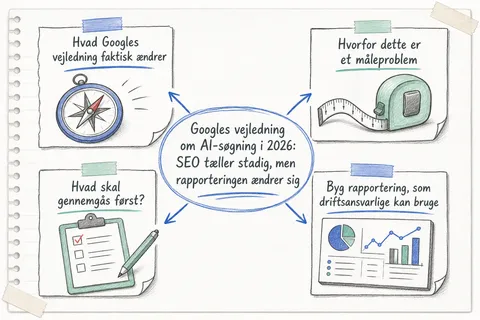 Hvad Googles
vejledning faktisk ændrer
Hvorfor dette er
et måleproblem
Googles vejledning
om AI-søgning i 2026:
SEO tæller stadig, men
rapporteringen ændrer sig
Hvad skal
gennemgås først?
Byg rapportering, som
driftsansvarlige kan bruge